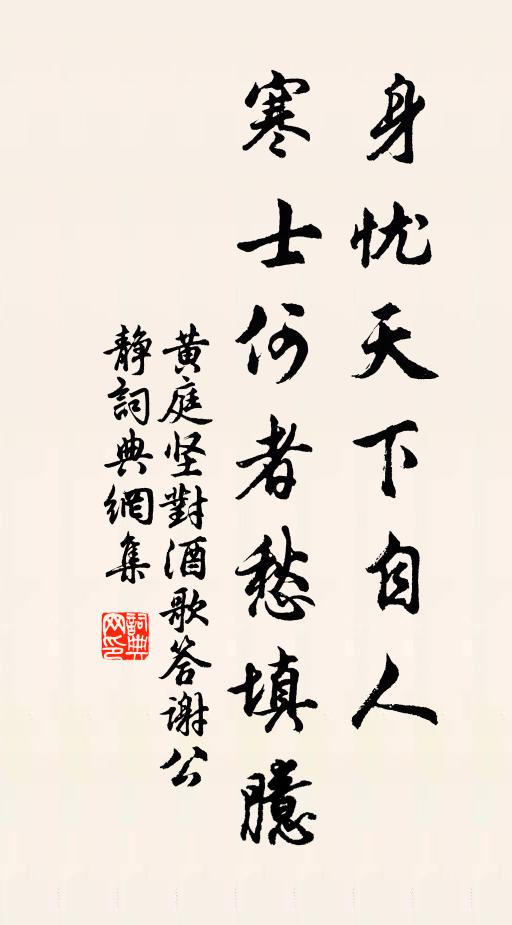 身忧天下自人
寒士何者愁填臆
黄庭坚對酒歌答谢公
静詞典網集
詞典
网印